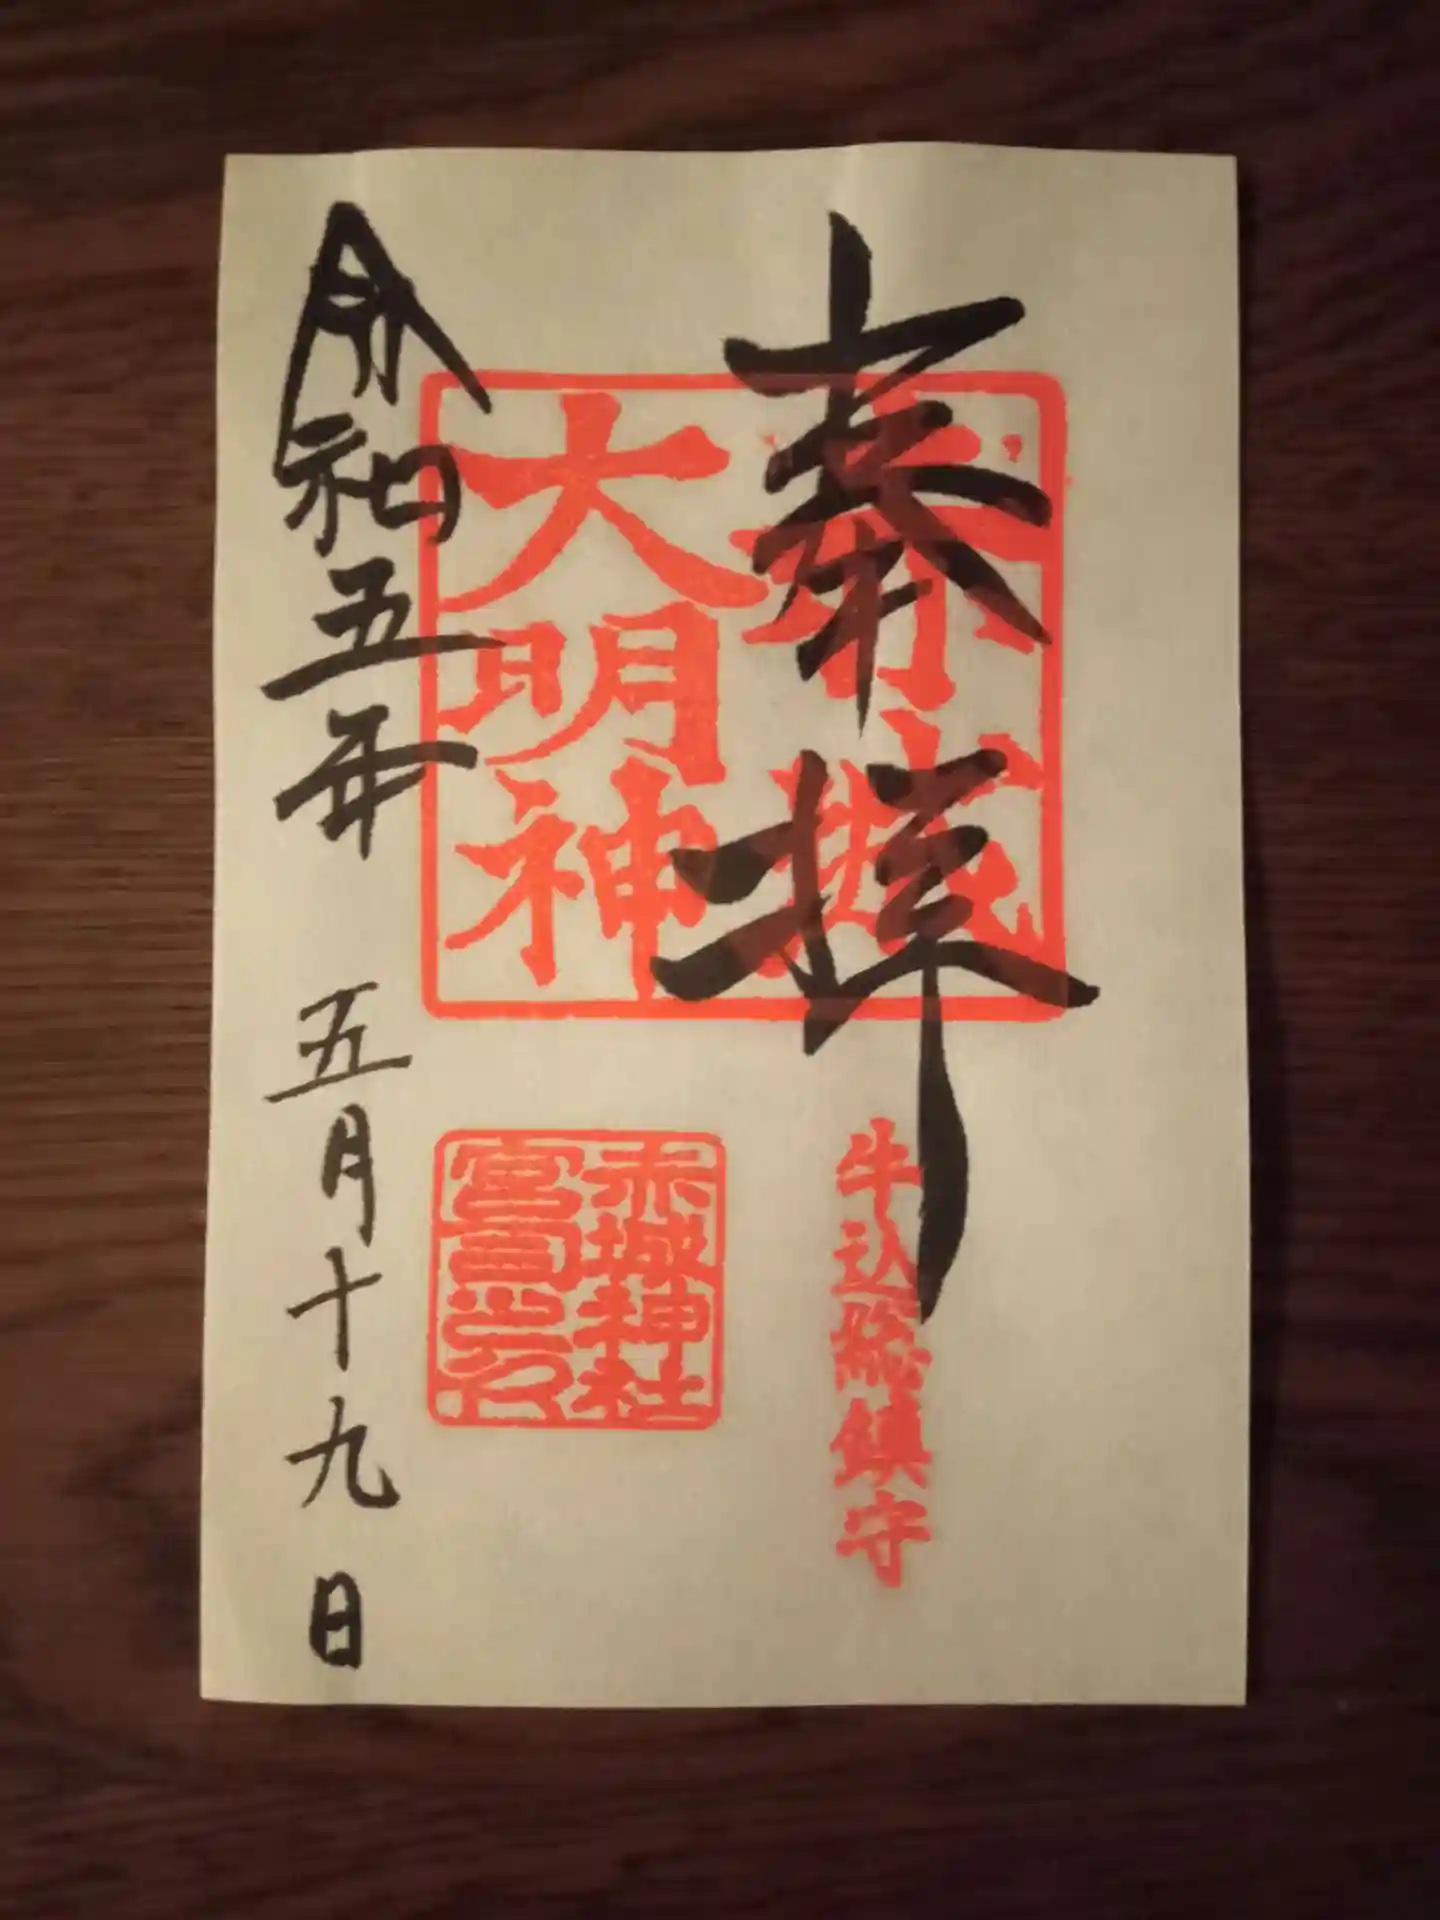 奉拝
赤城
大明神
牛込総鎮守
赤城神社
宮司之印
令和五年 五月十九日